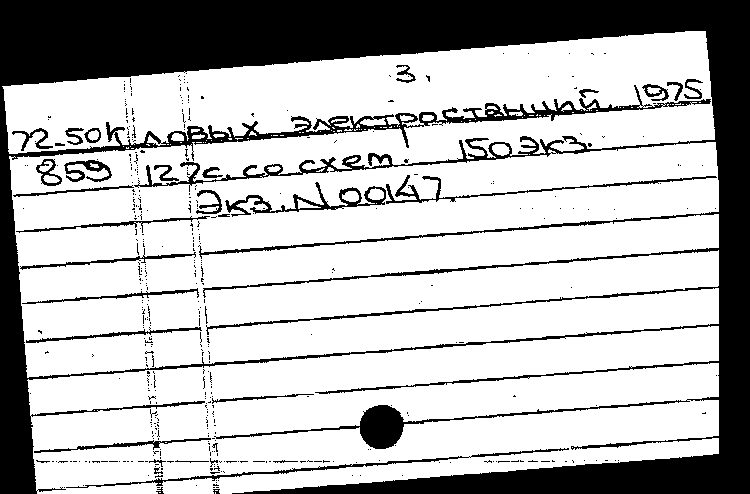 3.
72-50к ловых электростанций. 1975
859 127с. со схем. 150 экз.
Экз. N00147.